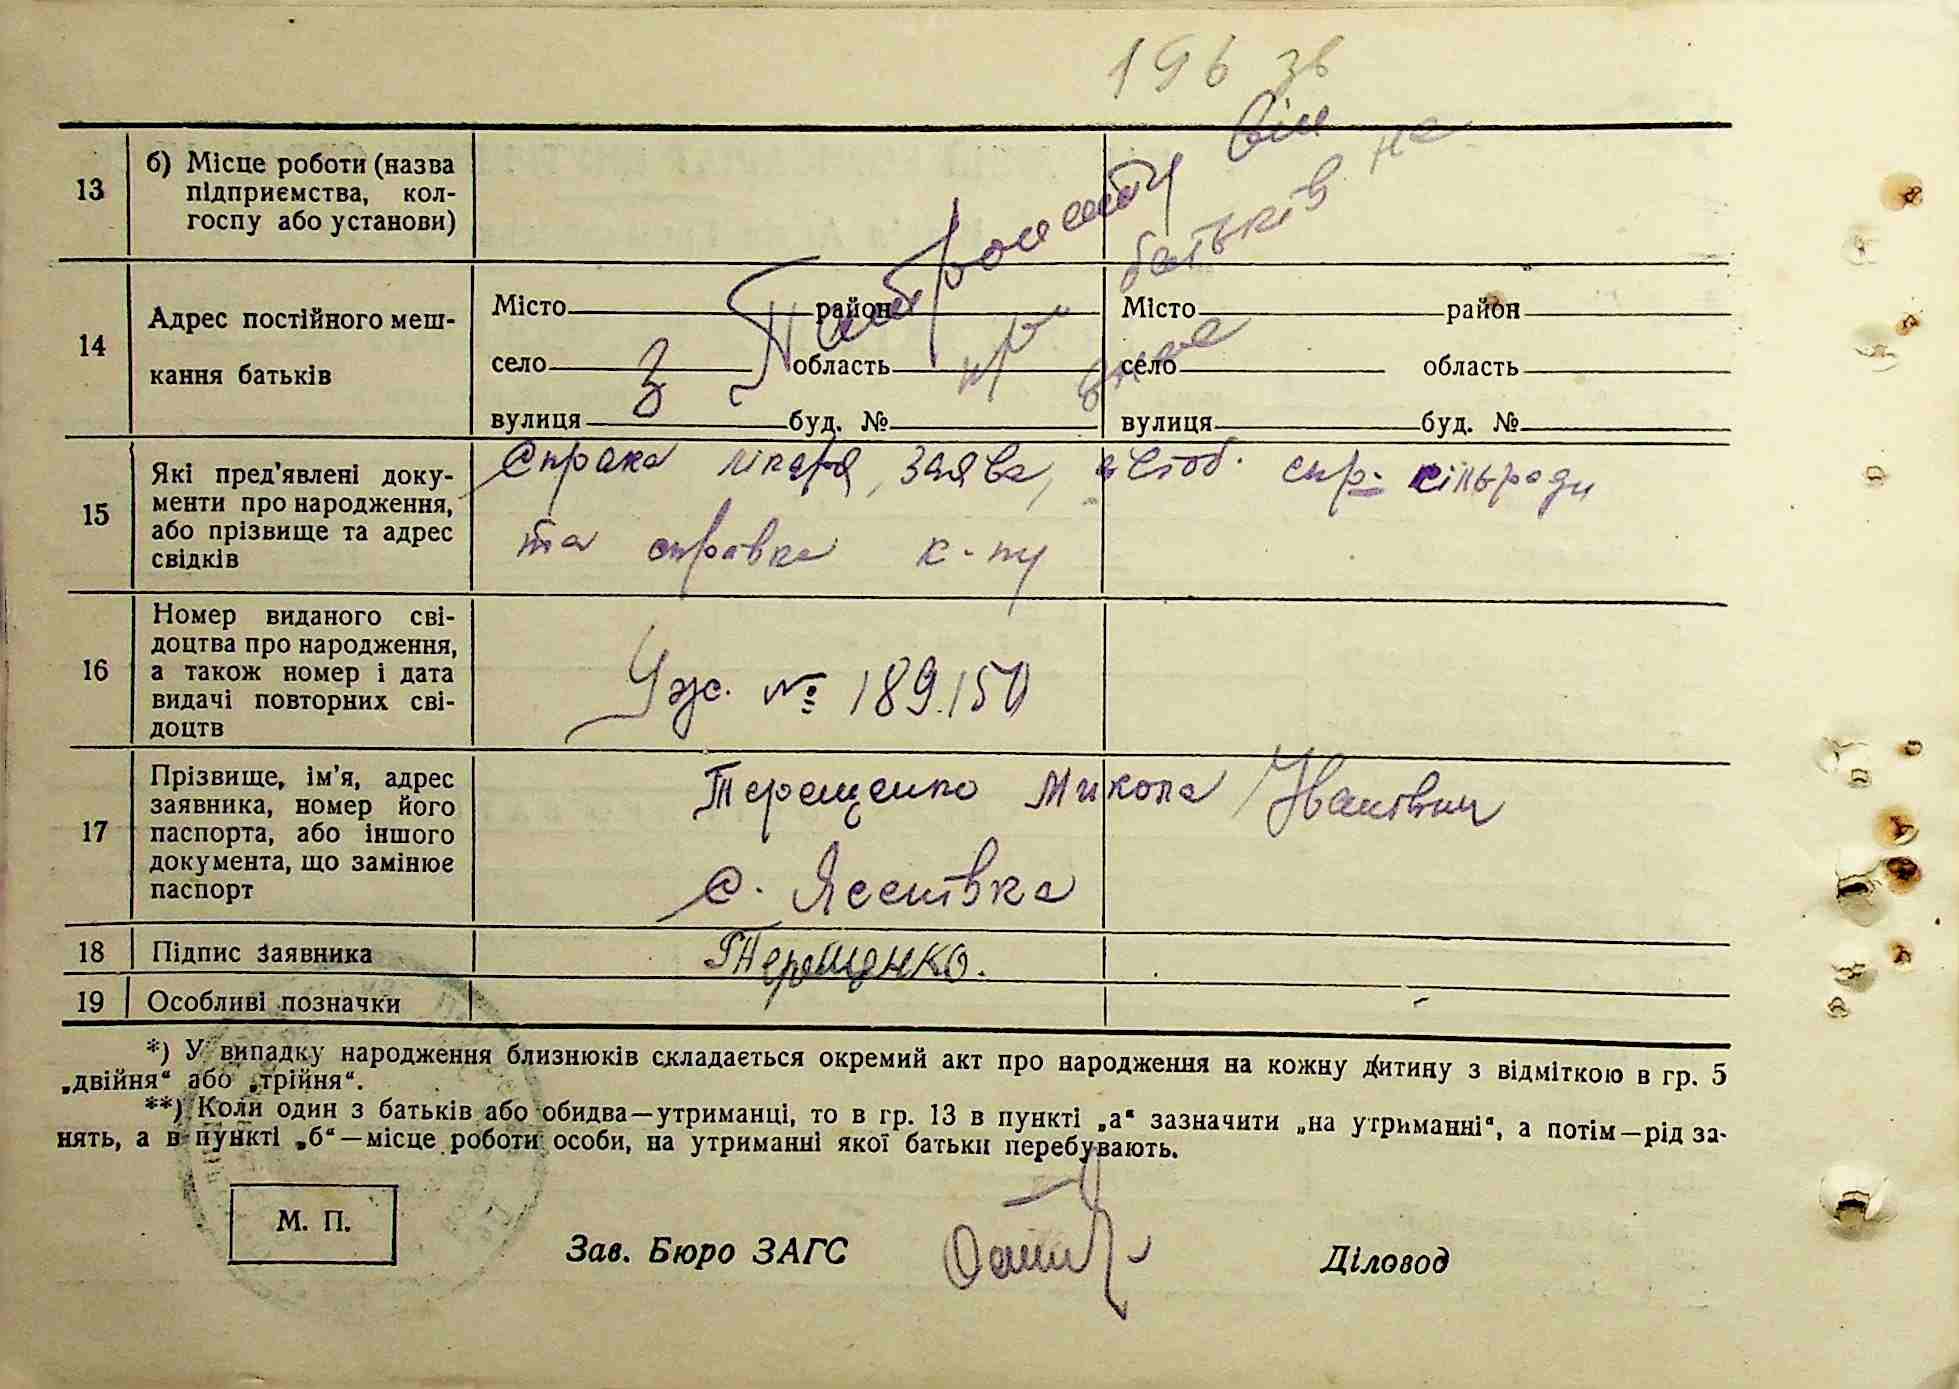 196 зв
13
б) Місце роботи (назва
підприємства, кол-
госпу або установи)
З Патронату він
батьків не
знає
14
Адрес постійного меш-
кання батьків
Місто район Місто район
село область село область
вулиця буд. № вулиця буд. №
15
Які пред'явлені доку-
менти про народження,
або прізвище та адрес
свідків
Справка лікаря, заява, спр. сільради
та справка к-пу
16
Номер виданого сві-
доцтва про народження,
а також номер і дата
видачі повторних сві-
доцтв
№ 189.150
17
Прізвище, ім'я, адрес
заявника, номер його
паспорта, або іншого
документа, що замінює
паспорт
Терещенко Микола Іванович
с.
18 Підпис заявника
Терещенко.
19 Особливі позначки
*) У випадку народження близнюків складається окремий акт про народження на кожну дитину з відміткою в гр. 5
„двійня“ або „трійня“.
**) Коли один з батьків або обидва—утриманці, то в гр. 13 в пункті „а“ зазначити „на утриманні“, а потім—рід за-
нять, а в пункті „б“—місце роботи особи, на утриманні якої батьки перебувають.
М. П.
Зав. Бюро ЗАГС
Діловод